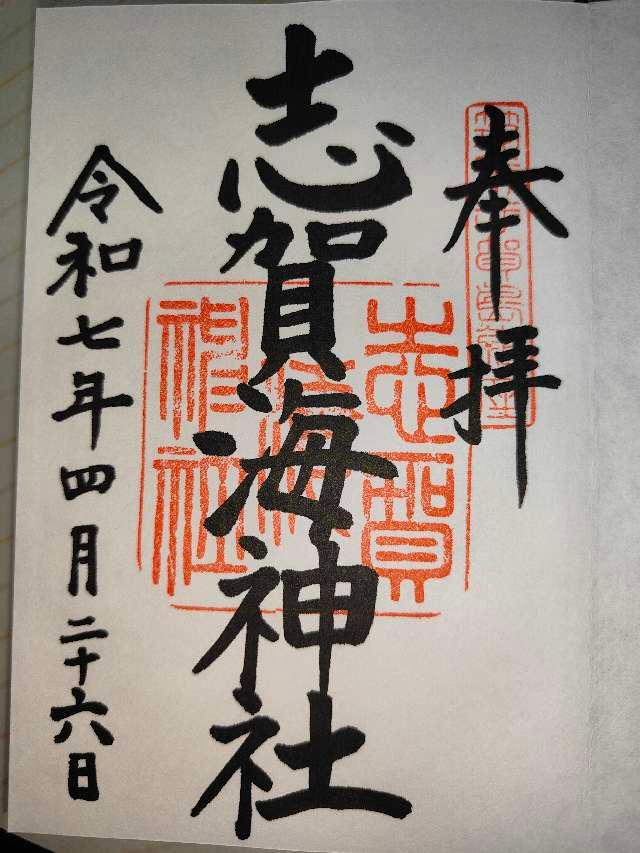 奉拝
志賀海神社
志賀海神社
令和七年四月二十六日